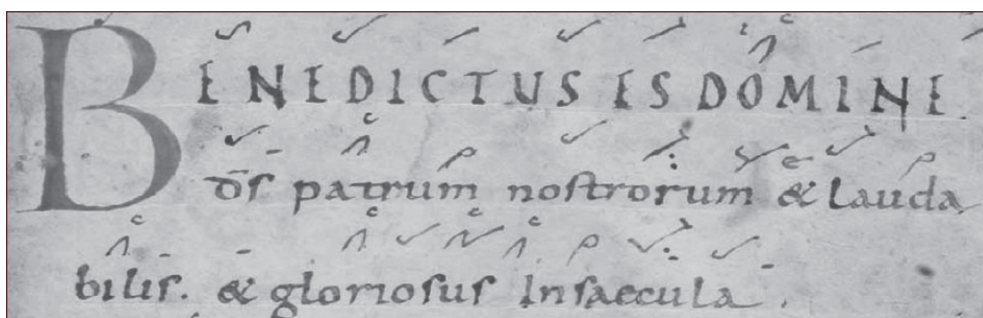 BENEDICTUS ES DOMINE.
ds̄ patrum nostrorum & lauda
bilis. & gloriosus In saecula.